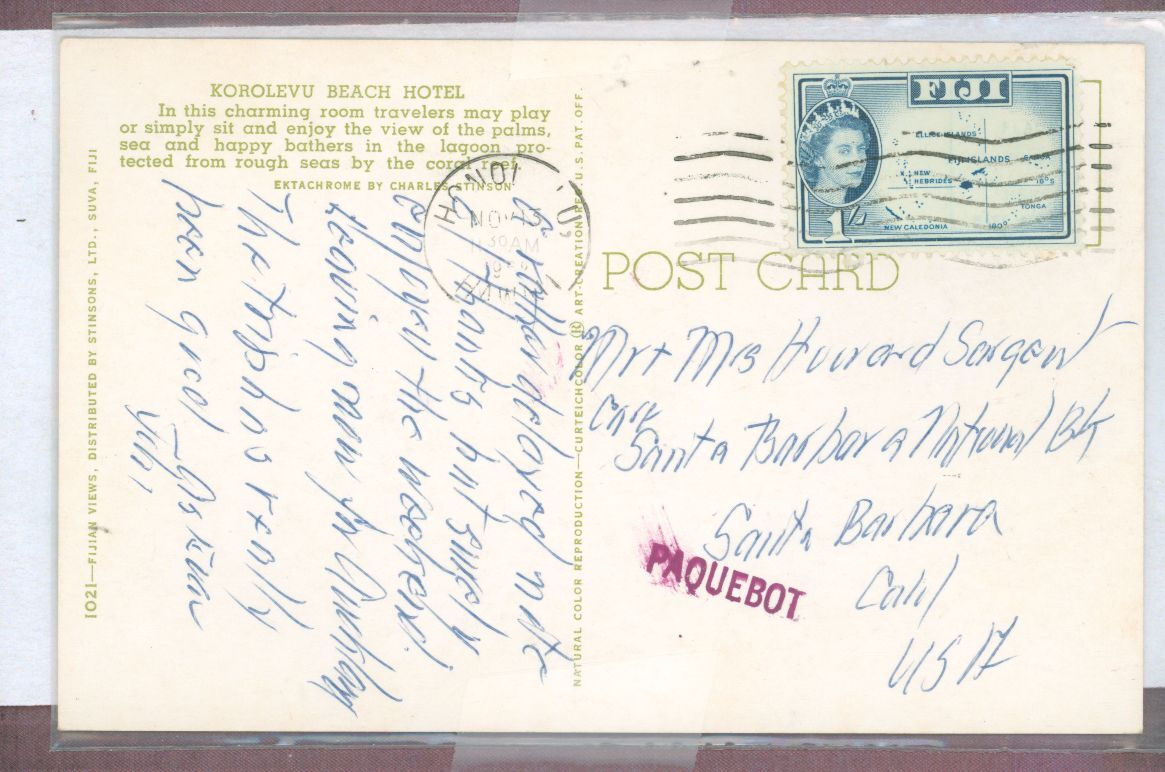 KOROLEVU BEACH HOTEL
In this charming room travelers may play
or simply sit and enjoy the view of the palms,
sea and happy bathers in the lagoon pro-
tected from rough seas by the coral reef.
EKTACHROME BY CHARLES STINSON
1021—FIJIAN VIEWS, DISTRIBUTED BY STINSONS, LTD., SUVA, FIJI
NATURAL COLOR REPRODUCTION—CURTEICHCOLOR ® ART-CREATION REG. U.S. PAT. OFF.
POST CARD
FIJI
ELLICE ISLANDS
FIJI ISLANDS
SAMOA
NEW
HEBRIDES
18°S
TONGA
NEW CALEDONIA
180°
1/-
NOV 13
11 30 AM
PAQUEBOT
Mr + Mrs Howard Sargent
Care
Santa Barbara National Bk
Santa Barbara
Calif
USA
delayed note
thanks but surely
enjoyed the weekend.
Leaving now for
The trip has really
been good